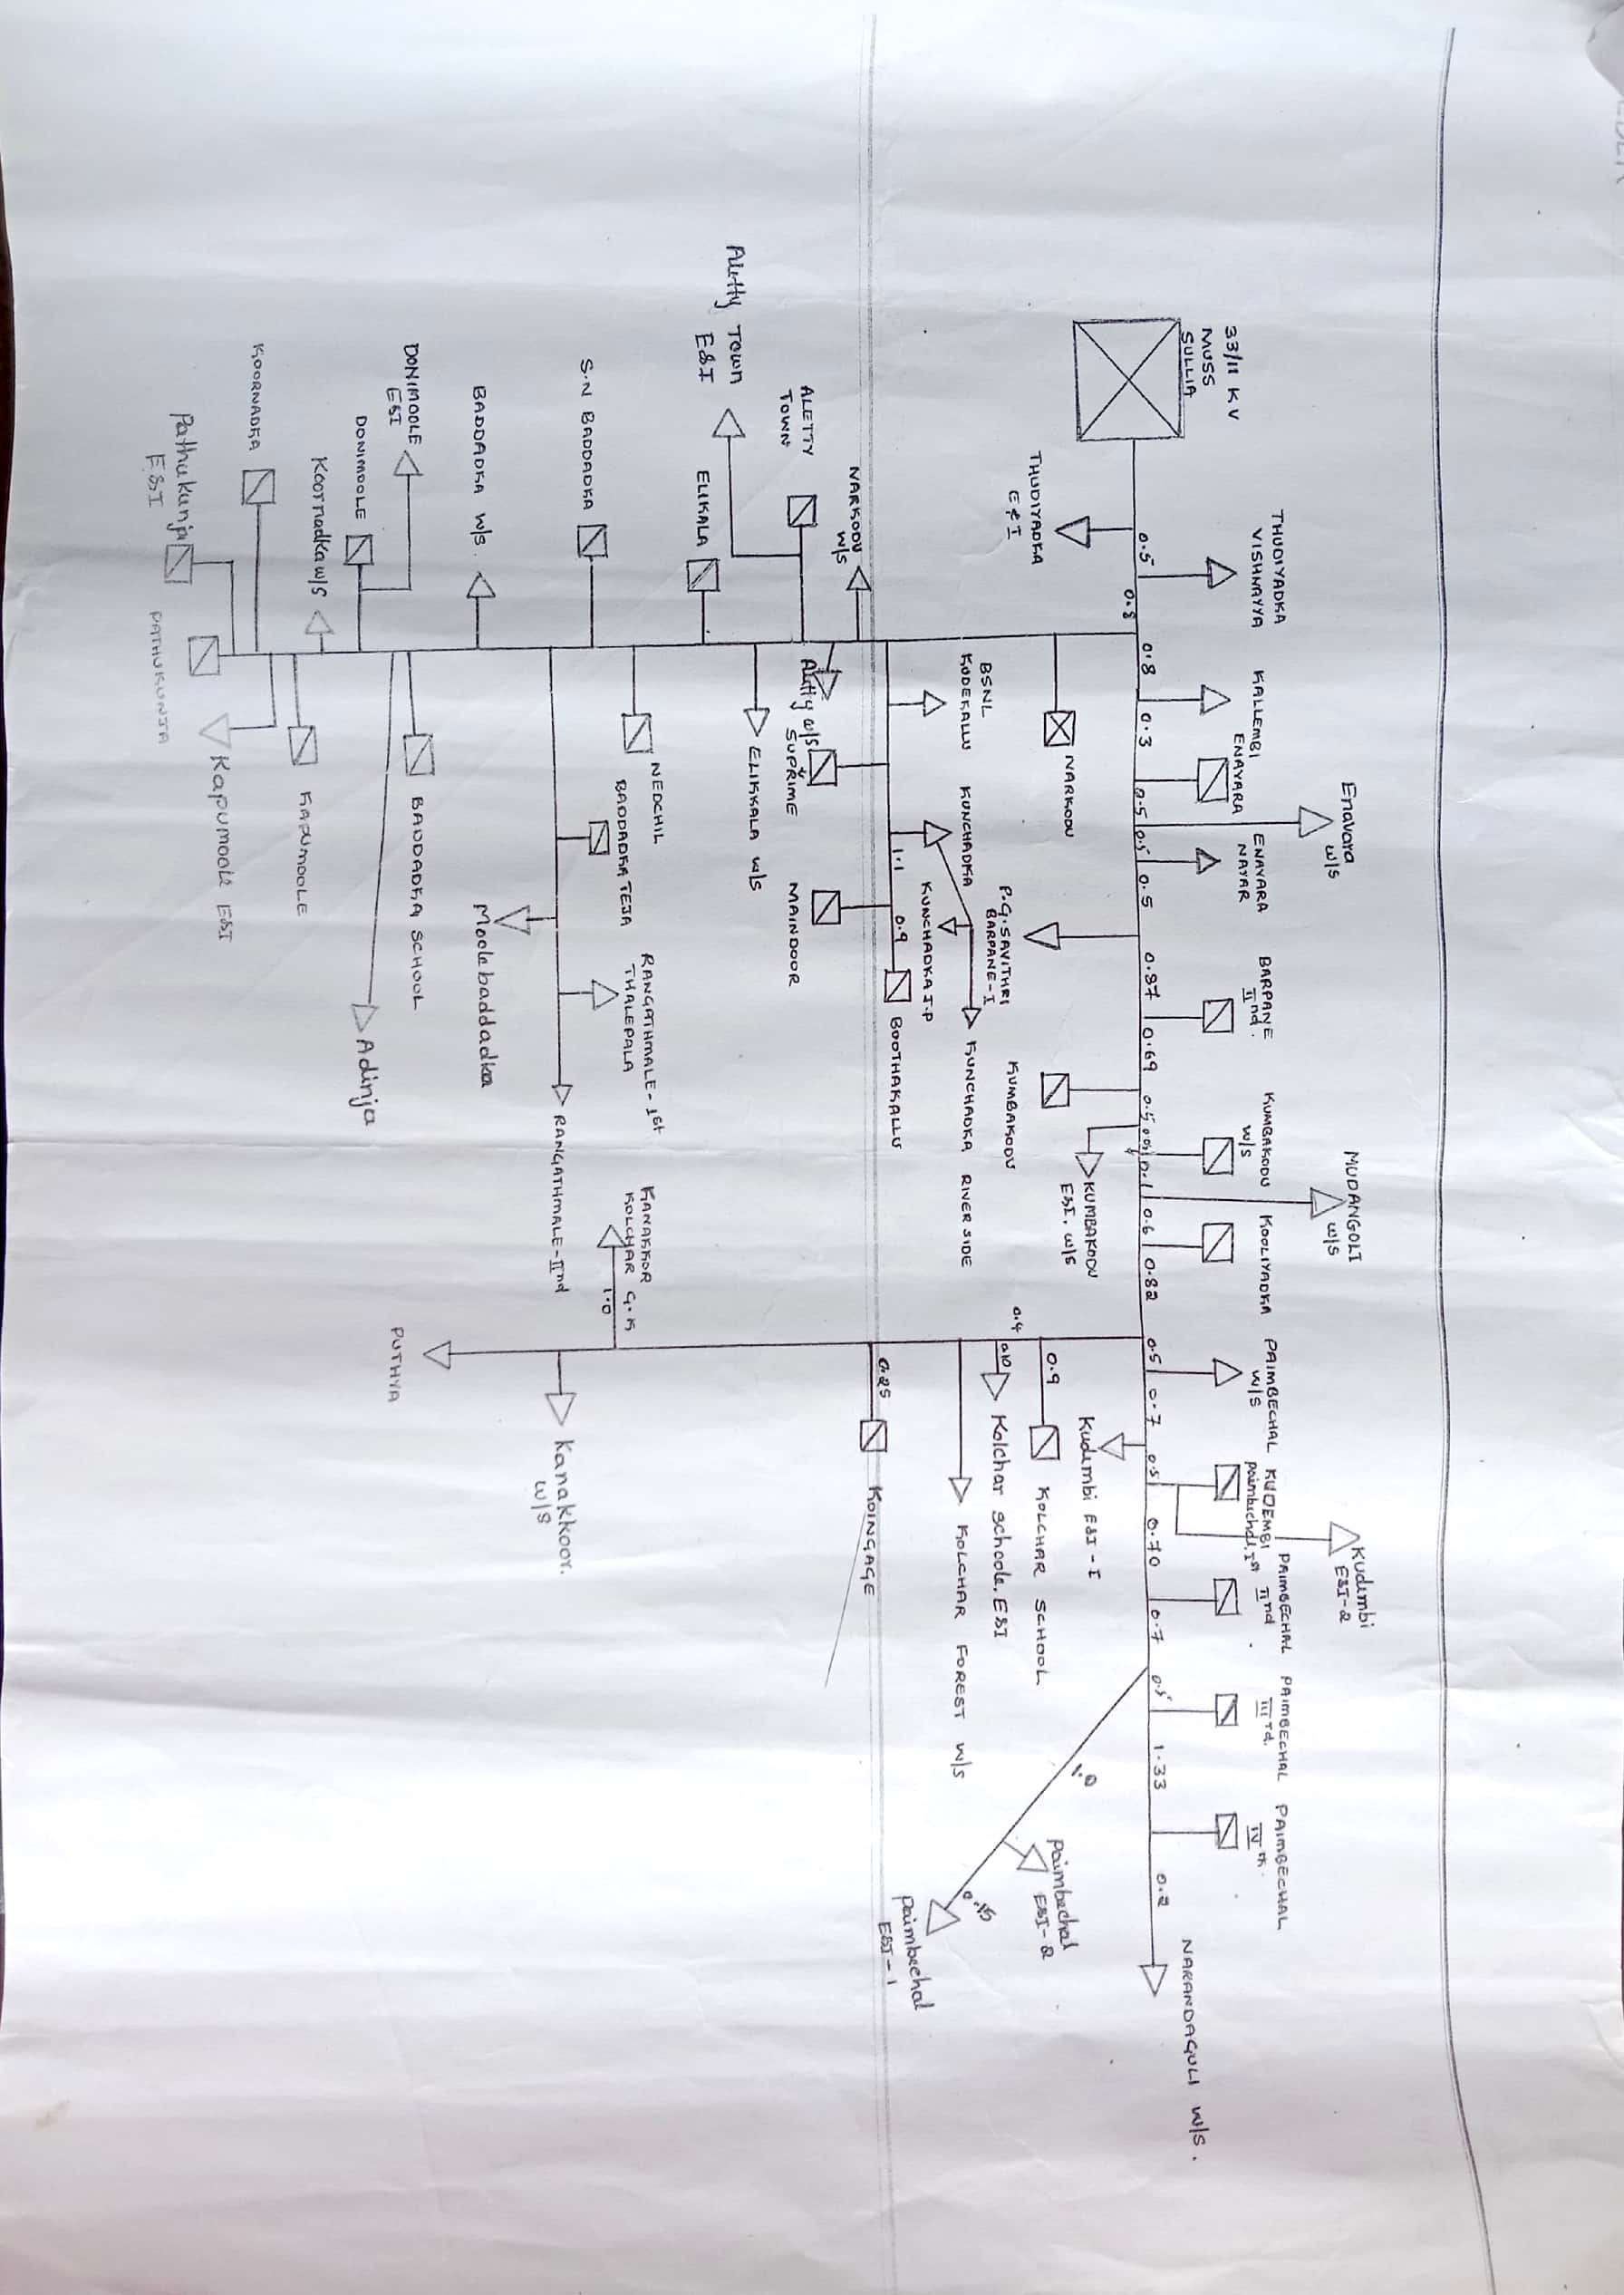 33/11 KV
MUSS
SULLIA
THUDIYADKA
VISHNAYYA
KALLEMBI
ENAYARA
Enavara
w/s
ENAYARA
NAYAR
BARPANE
IInd.
KUMBAKODU
w/s
MUDANGOLI
w/s
KOOLIYADKA
PAIMBECHAL
w/s
KUDEMBI
paimbechal, Ist
Kudimbi
E&I-2
PAIMBECHAL
IInd
PAIMBECHAL
IIIrd.
PAIMBECHAL
IVth.
NARANDAGULI w/s.
0.5
0.8
0.8
0.3
0.5
0.5
0.5
0.87
0.69
0.5
0.1
0.6
0.82
0.5
0.7
0.5
0.70
0.7
0.5
1.33
0.2
THUDIYADKA
E&I
NARKODU
P.G. SAVITHRI
BARPANE-I
KUMBAKODU
KUMBAKODU
E&I. w/s
Kudimbi E&I-I
0.9
KOLCHAR SCHOOL
0.4
Kolchar schoole. E&I
KOLCHAR FOREST w/s
0.25
KOINGAGE
1.0
Paimbechal
E&I-2
Paimbechal
E&I-1
BSNL
KODEKALLU
KUNCHADKA
KUNCHADKA J.P
KUNCHADKA RIVER SIDE
1.1
0.9
BOOTHAKALLU
SUPRIME
MAINDOOR
NARKODU
w/s
Aletty w/s
ALETTY
TOWN
Aletty Town
E&I
ELIKKALA w/s
ELIKALA
NEDCHIL
S.N BADDADKA
BADDADKA TEJA
RANGATHMALE-1st
THALEPALA
RANGATHMALE-IInd
Moolebaddadka
KANAKKOR
KOLCHAR G.K
1.0
Kanakkoor.
w/s
PUTHYA
BADDADKA w/s.
BADDADKA SCHOOL
Adinja
DONIMOOLE
E&I
DONIMOOLE
Koornadka w/s
KAPUMOOLE
KOORNADKA
Kapumoole E&I
Pathukunja
E&I
PATHUKUNJA